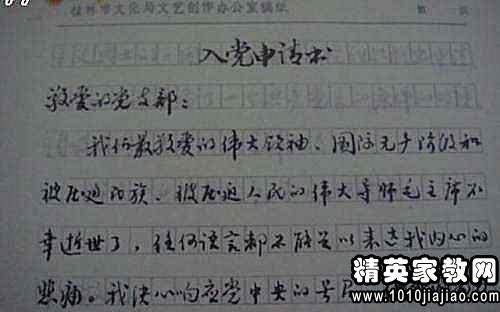 桂林市文化局文艺创作办公室稿纸
入党申请书
敬爱的党支部：
我们最敬爱的伟大领袖、国际无产阶级和
被压迫民族、被压迫人民的伟大导师毛主席不
幸逝世了，任何语言都不能足以表达我内心的
悲痛。我决心响应党中央的号
精英家教网
www.1010jiajiao.com